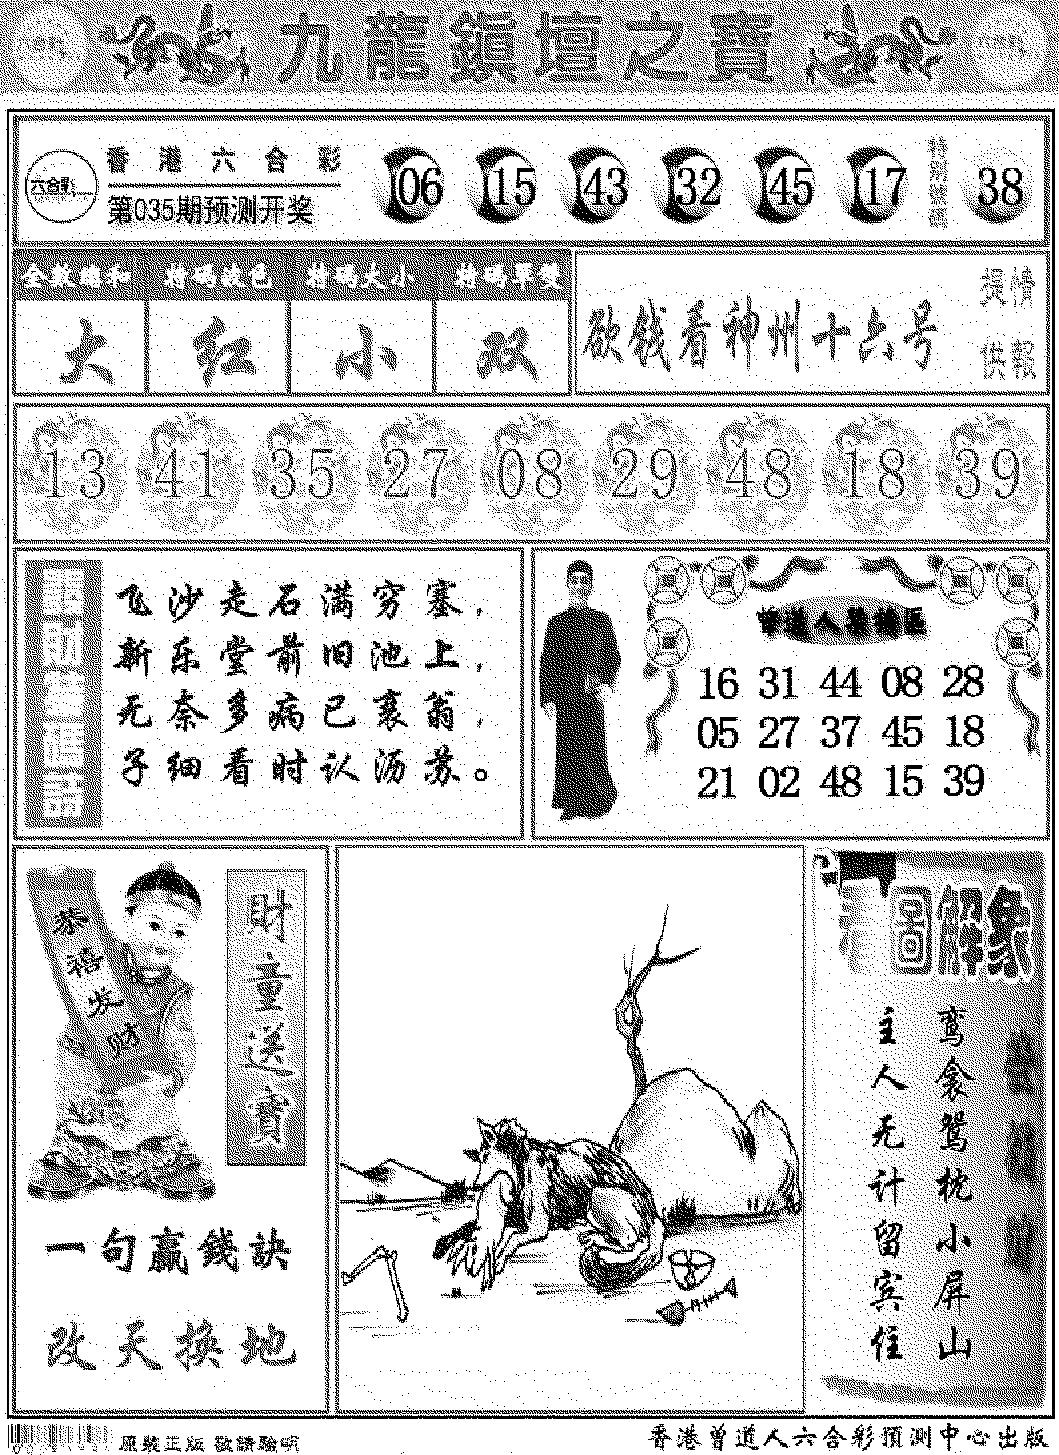 九龍鎮壇之寶
六合彩
香港六合彩
第035期预测开奖
06 15 43 32 45 17
特别號碼
38
全数總和 特碼波色 特碼大小 特碼單雙
大 红 小 双
欲钱看神州十六号
提供
情報
13 41 35 27 08 29 48 18 39
飞沙走石满穷塞，
新乐堂前旧池上，
无奈多病已衰翁，
子细看时认沥苏。
16 31 44 08 28
05 27 37 45 18
21 02 48 15 39
恭禧发财
財童送寶
一句赢錢訣
改天换地
看圖解象
鸾衾鸳枕小屏山
主人无计留宾住
原裝正版 敬請驗明
香港曾道人六合彩預測中心出版